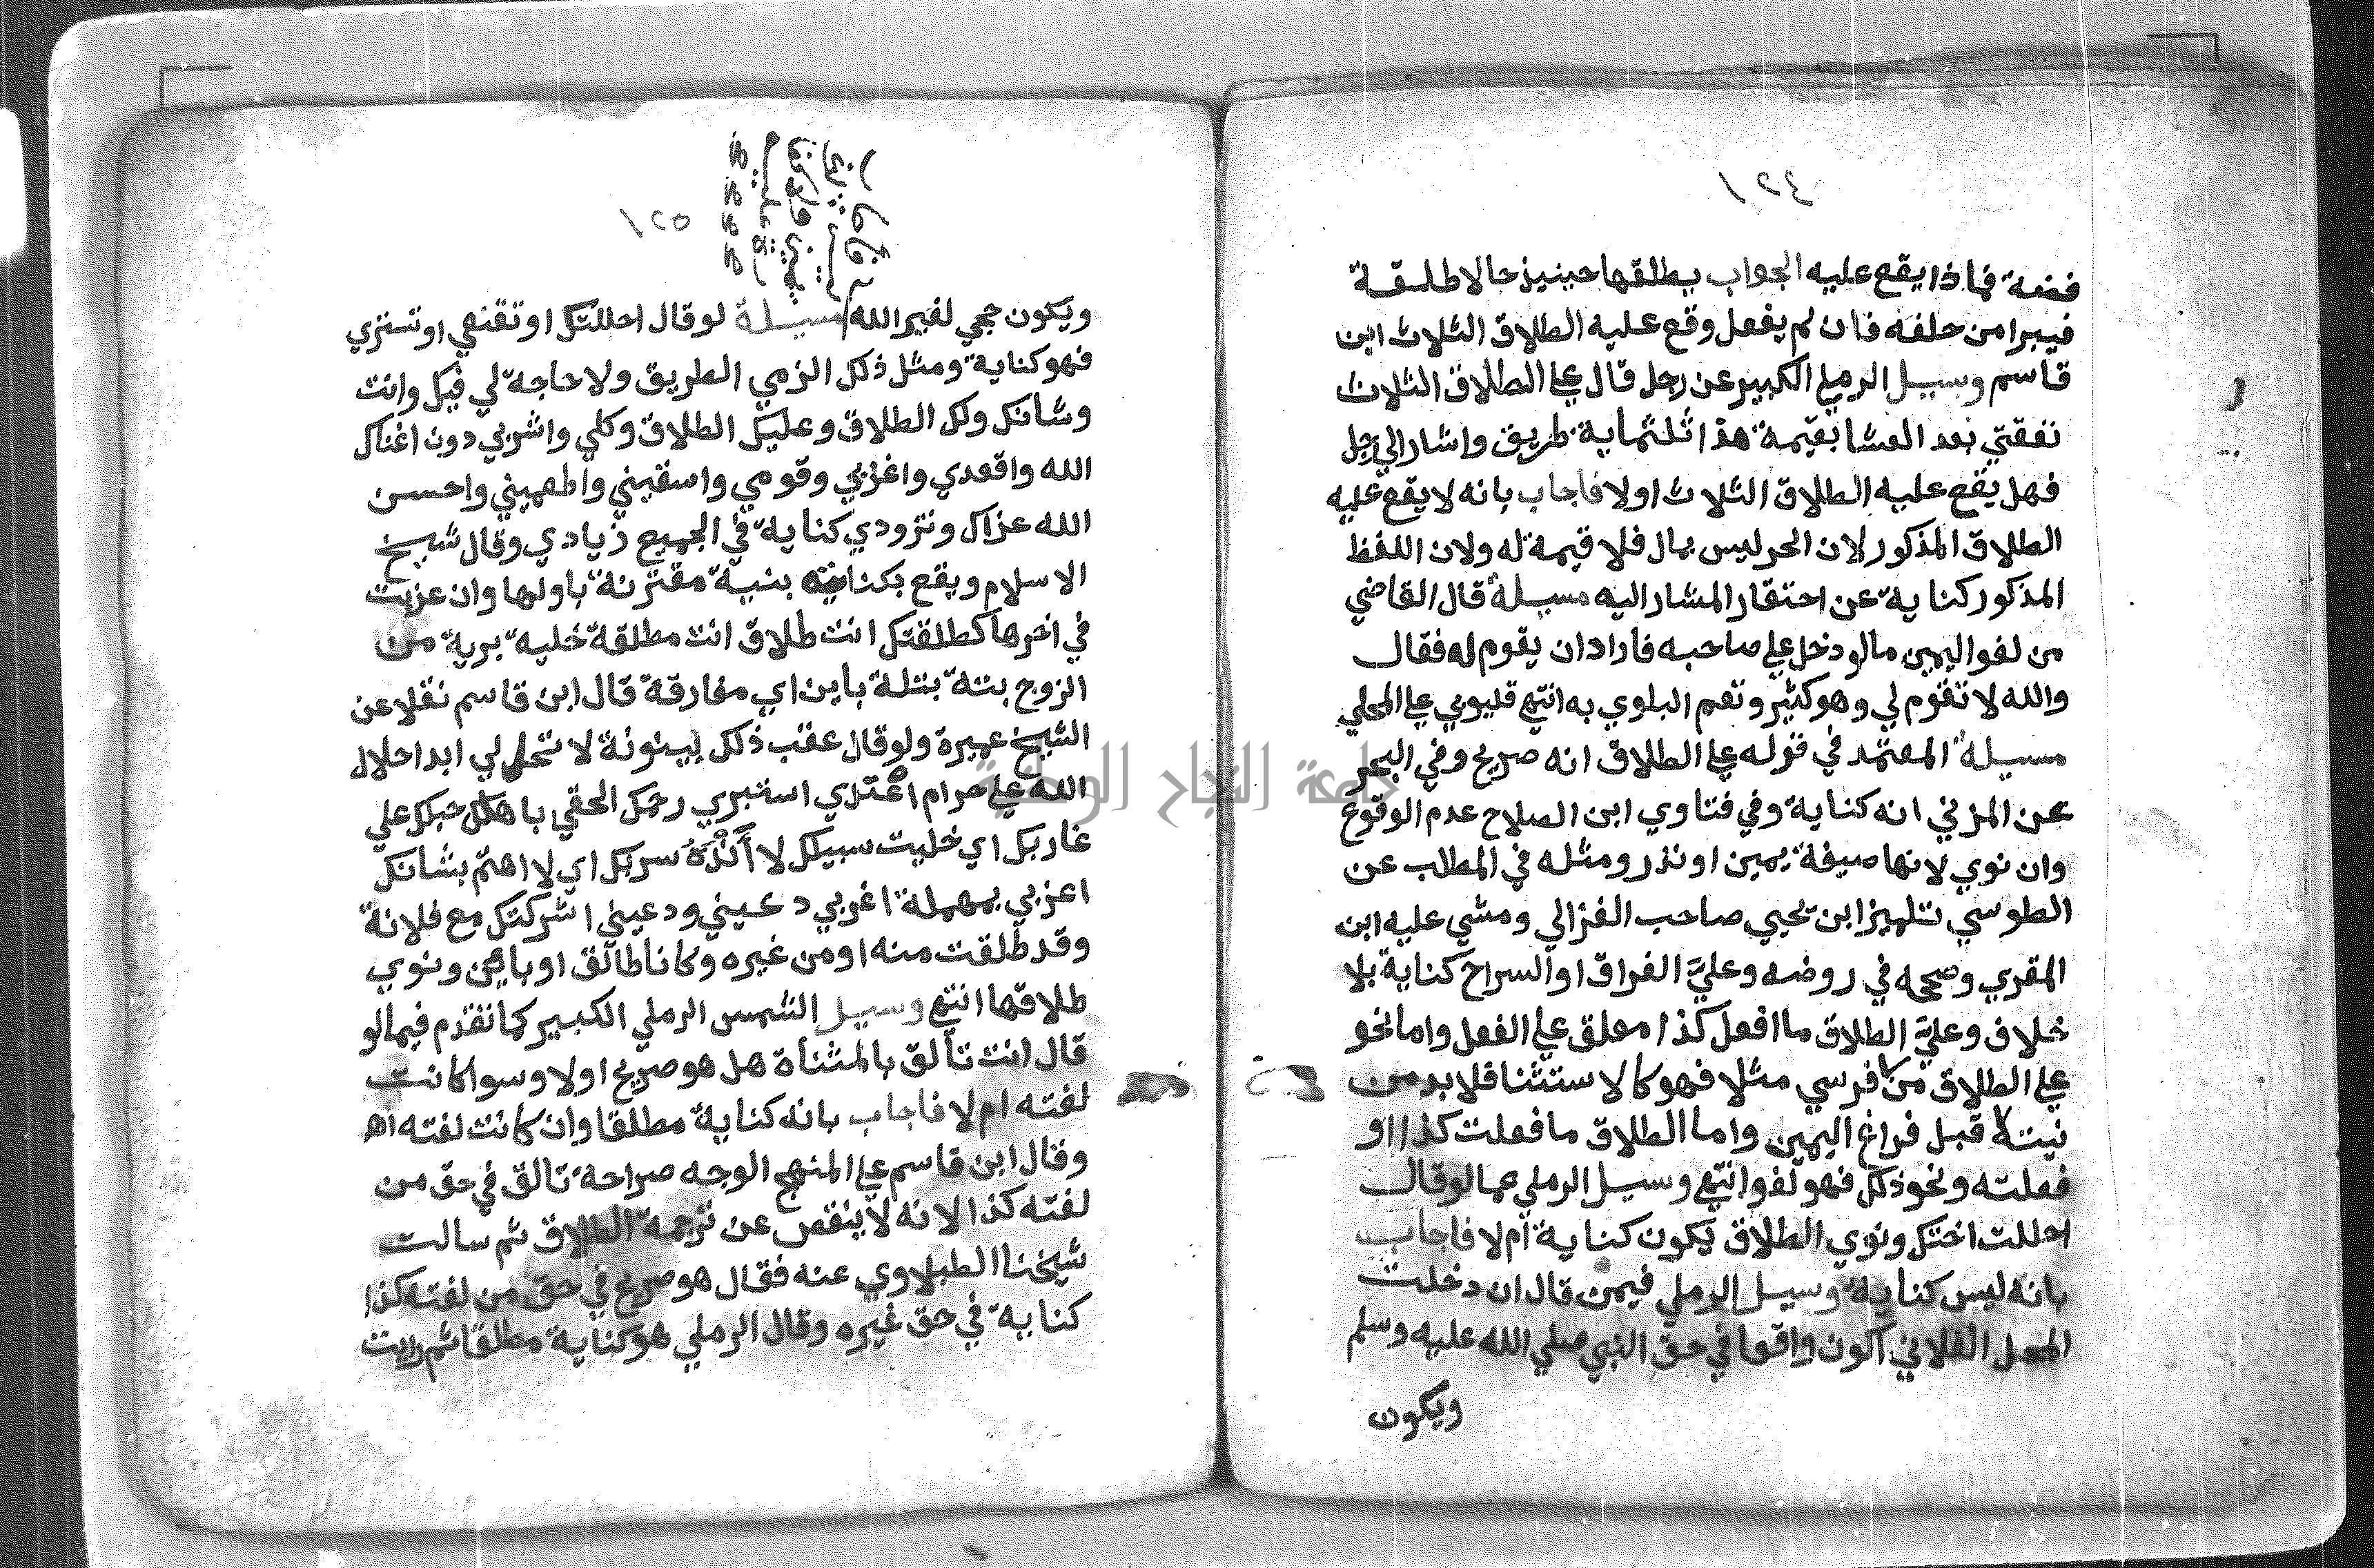 ١٢٤
فضة فماذا يقع عليه الجواب يطلقها حينيذ حالا طلقة
فيبرا من حلفه فان لم يفعل وقع عليه الطلاق الثلاث ابن
قاسم وسيل الرملي الكبير عن رجل قال علي الطلاق الثلاث
نفقتي بعد العشا بقيمة هذا ثلثماية طريق واشار الي رجل
فهل يقع عليه الطلاق الثلاث اولا فاجاب بانه لا يقع عليه
الطلاق المذكور لان الحر ليس بمال فلا قيمة له ولان اللفظ
المذكور كناية عن احتقار المشار اليه مسيلة قال القاضي
من لغو اليمين ما لو دخل علي صاحبه فاراد ان يقوم له فقال
والله لا تقوم لي وهو كثير وتعم البلوي به انتهي قليوبي علي المحلي
مسيلة المعتمد في قوله علي الطلاق انه صريح وفي البحر
عن المزني انه كناية وفي فتاوي ابن الصلاح عدم الوقوع
وان نوي لانها صيغة يمين او نذر ومثله في المطلب عن
الطوسي تلميذ ابن يحيي صاحب الغزالي ومشي عليه ابن
المقري وصححه في روضه وعليّ الفراق او السراح كناية بلا
خلاف وعليّ الطلاق ما افعل كذا معلق علي الفعل واما نحو
علي الطلاق من فرسي مثلا فهو كالاستثنا فلا بد من
نيته قبل فراغ اليمين واما الطلاق ما فعلت كذا او
فعلته ونحو ذلك فهو لغو انتهي وسيل الرملي عما لو قال
احللت اختك ونوي الطلاق يكون كناية ام لا فاجاب
بانه ليس كناية وسيل الرملي فيمن قال ان دخلت
المحل الفلاني اكون واقعا في حق النبي صلي الله عليه وسلم
ويكون
١٢٥
ويكون حجي لغير الله مسيلة لو قال احللتك او تقنعي او تستري
فهو كناية ومثل ذلك الزمي الطريق ولا حاجة لي فيك وانت
وشانك ولك الطلاق وعليك الطلاق وكلي واشربي دون اغناك
الله واقعدي واغزلي وقومي واسقيني واطعميني واحسن
الله عزاك وتزودي كناية في الجميع زيادي وقال شيخ
الاسلام ويقع بكناية بنية مقترنة باولها وان عزبت
في اخرها كطلقتك انت طلاق انت مطلقة خلية برية من
الزوج بتة بتلة باين اي مفارقة قال ابن قاسم نقلا عن
الشيخ عميرة ولو قال عقب ذلك بينونة لا تحل لي ابدا حلال
الله علي حرام اعتدي استبري رحمك الحقي باهلك حبلك علي
غاربك اي خليت سبيلك لا أَنْدَهُ سربك اي لا اهتم بشانك
اعزبي بمهملة اغربي دعيني ودعيني اشركتك مع فلانة
وقد طلقت منه او من غيره وكانا طالق او باين ونوي
طلاقها انتهي وسيل الشمس الرملي الكبير كما تقدم فيما لو
قال انت تالق بالمثناة هل هو صريح اولا وسوا كانت
لغته ام لا فاجاب بانه كناية مطلقا وان كانت لغته اه
وقال ابن قاسم علي المنهج الوجه صراحة تالق في حق من
لغته كذا لانه لا ينقص عن ترجمة الطلاق ثم سالت
شيخنا الطبلاوي عنه فقال هو صريح في حق من لغته كذا
كناية في حق غيره وقال الرملي هو كناية مطلقا ثم رايت
جامعة النجاح الوطنية